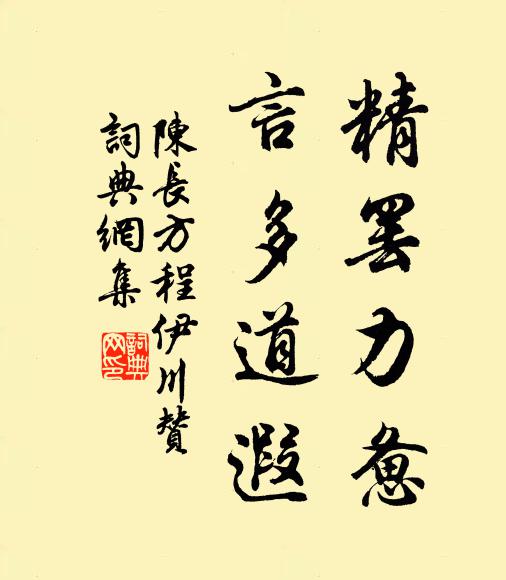 精罷力惫
言多道遐
陳長方程伊川贊
詞典網集
詞典
网印